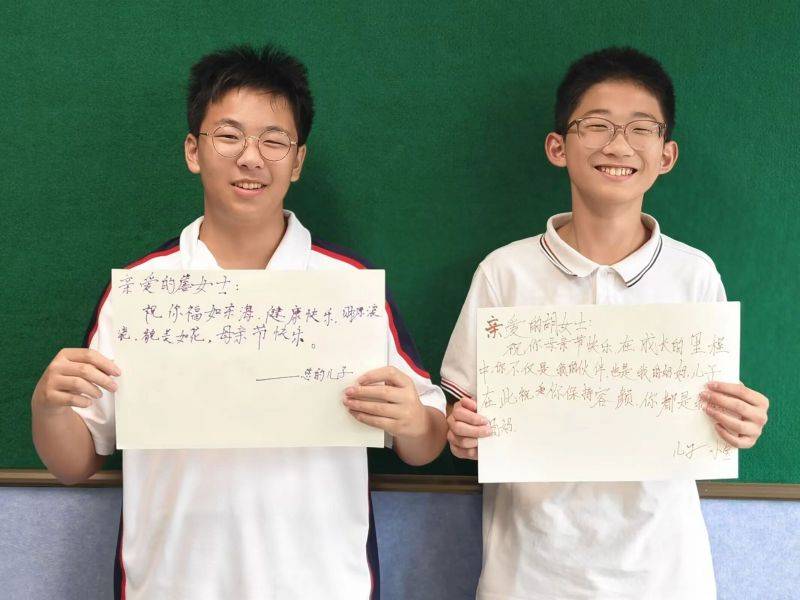 亲爱的詹女士：
祝你福如东海，健康快乐，
貌美如花，母亲节快乐。
——您的儿子
亲爱的胡女士：
祝你母亲节快乐在成长的里程
中你不仅是我的伙伴也是我的妈妈儿子
在此祝愿你保持容颜，你都是
妈妈.
儿子